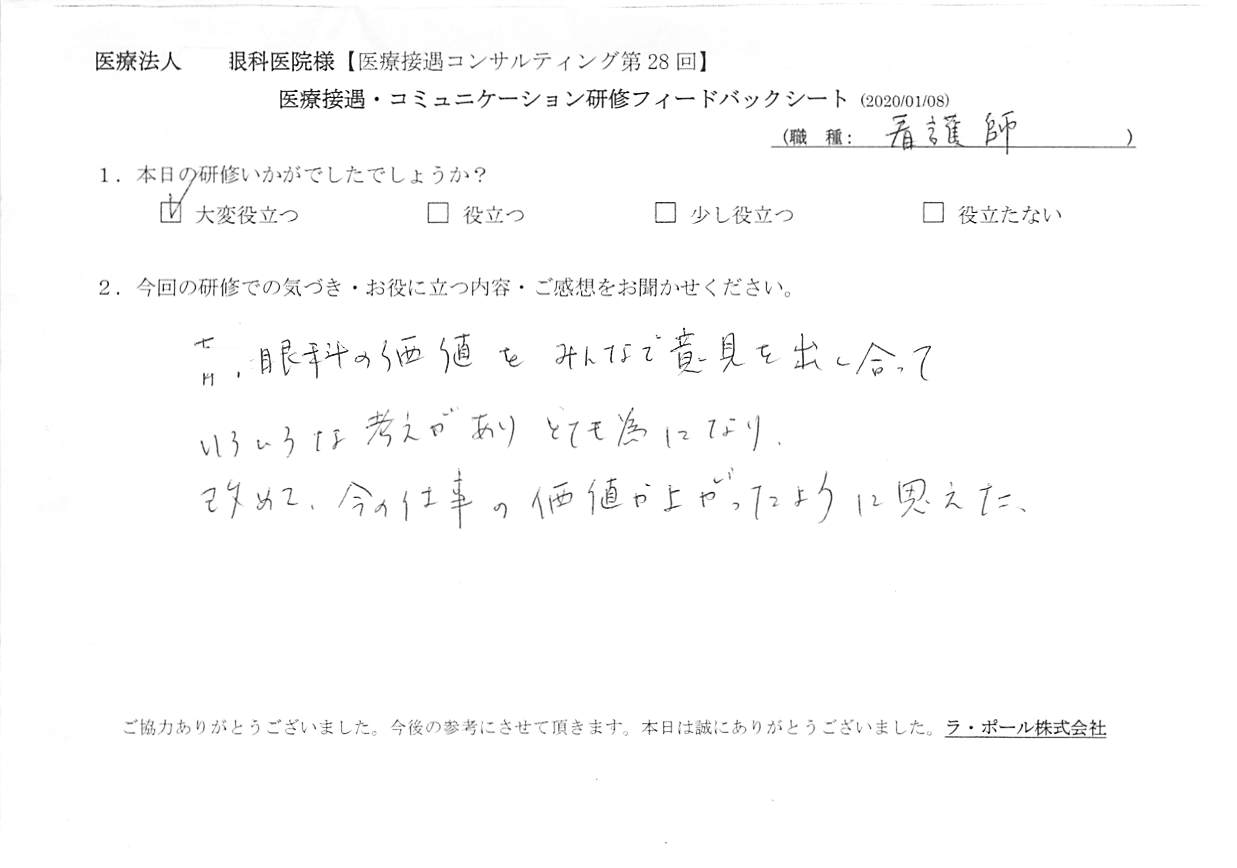 医療法人　　眼科医院様【医療接遇コンサルティング第 28 回】
医療接遇・コミュニケーション研修フィードバックシート (2020/01/08)
(職　種:　看護師　)
1．本日の研修いかがでしたでしょうか？
☑ 大変役立つ　□ 役立つ　□ 少し役立つ　□ 役立たない
2．今回の研修での気づき・お役に立つ内容・ご感想をお聞かせください。
眼科の価値をみんなで意見を出し合って
いろいろな考えがありとても為になり、
改めて、今の仕事の価値が上がったように思えた、
ご協力ありがとうございました。今後の参考にさせて頂きます。本日は誠にありがとうございました。ラ・ポール株式会社